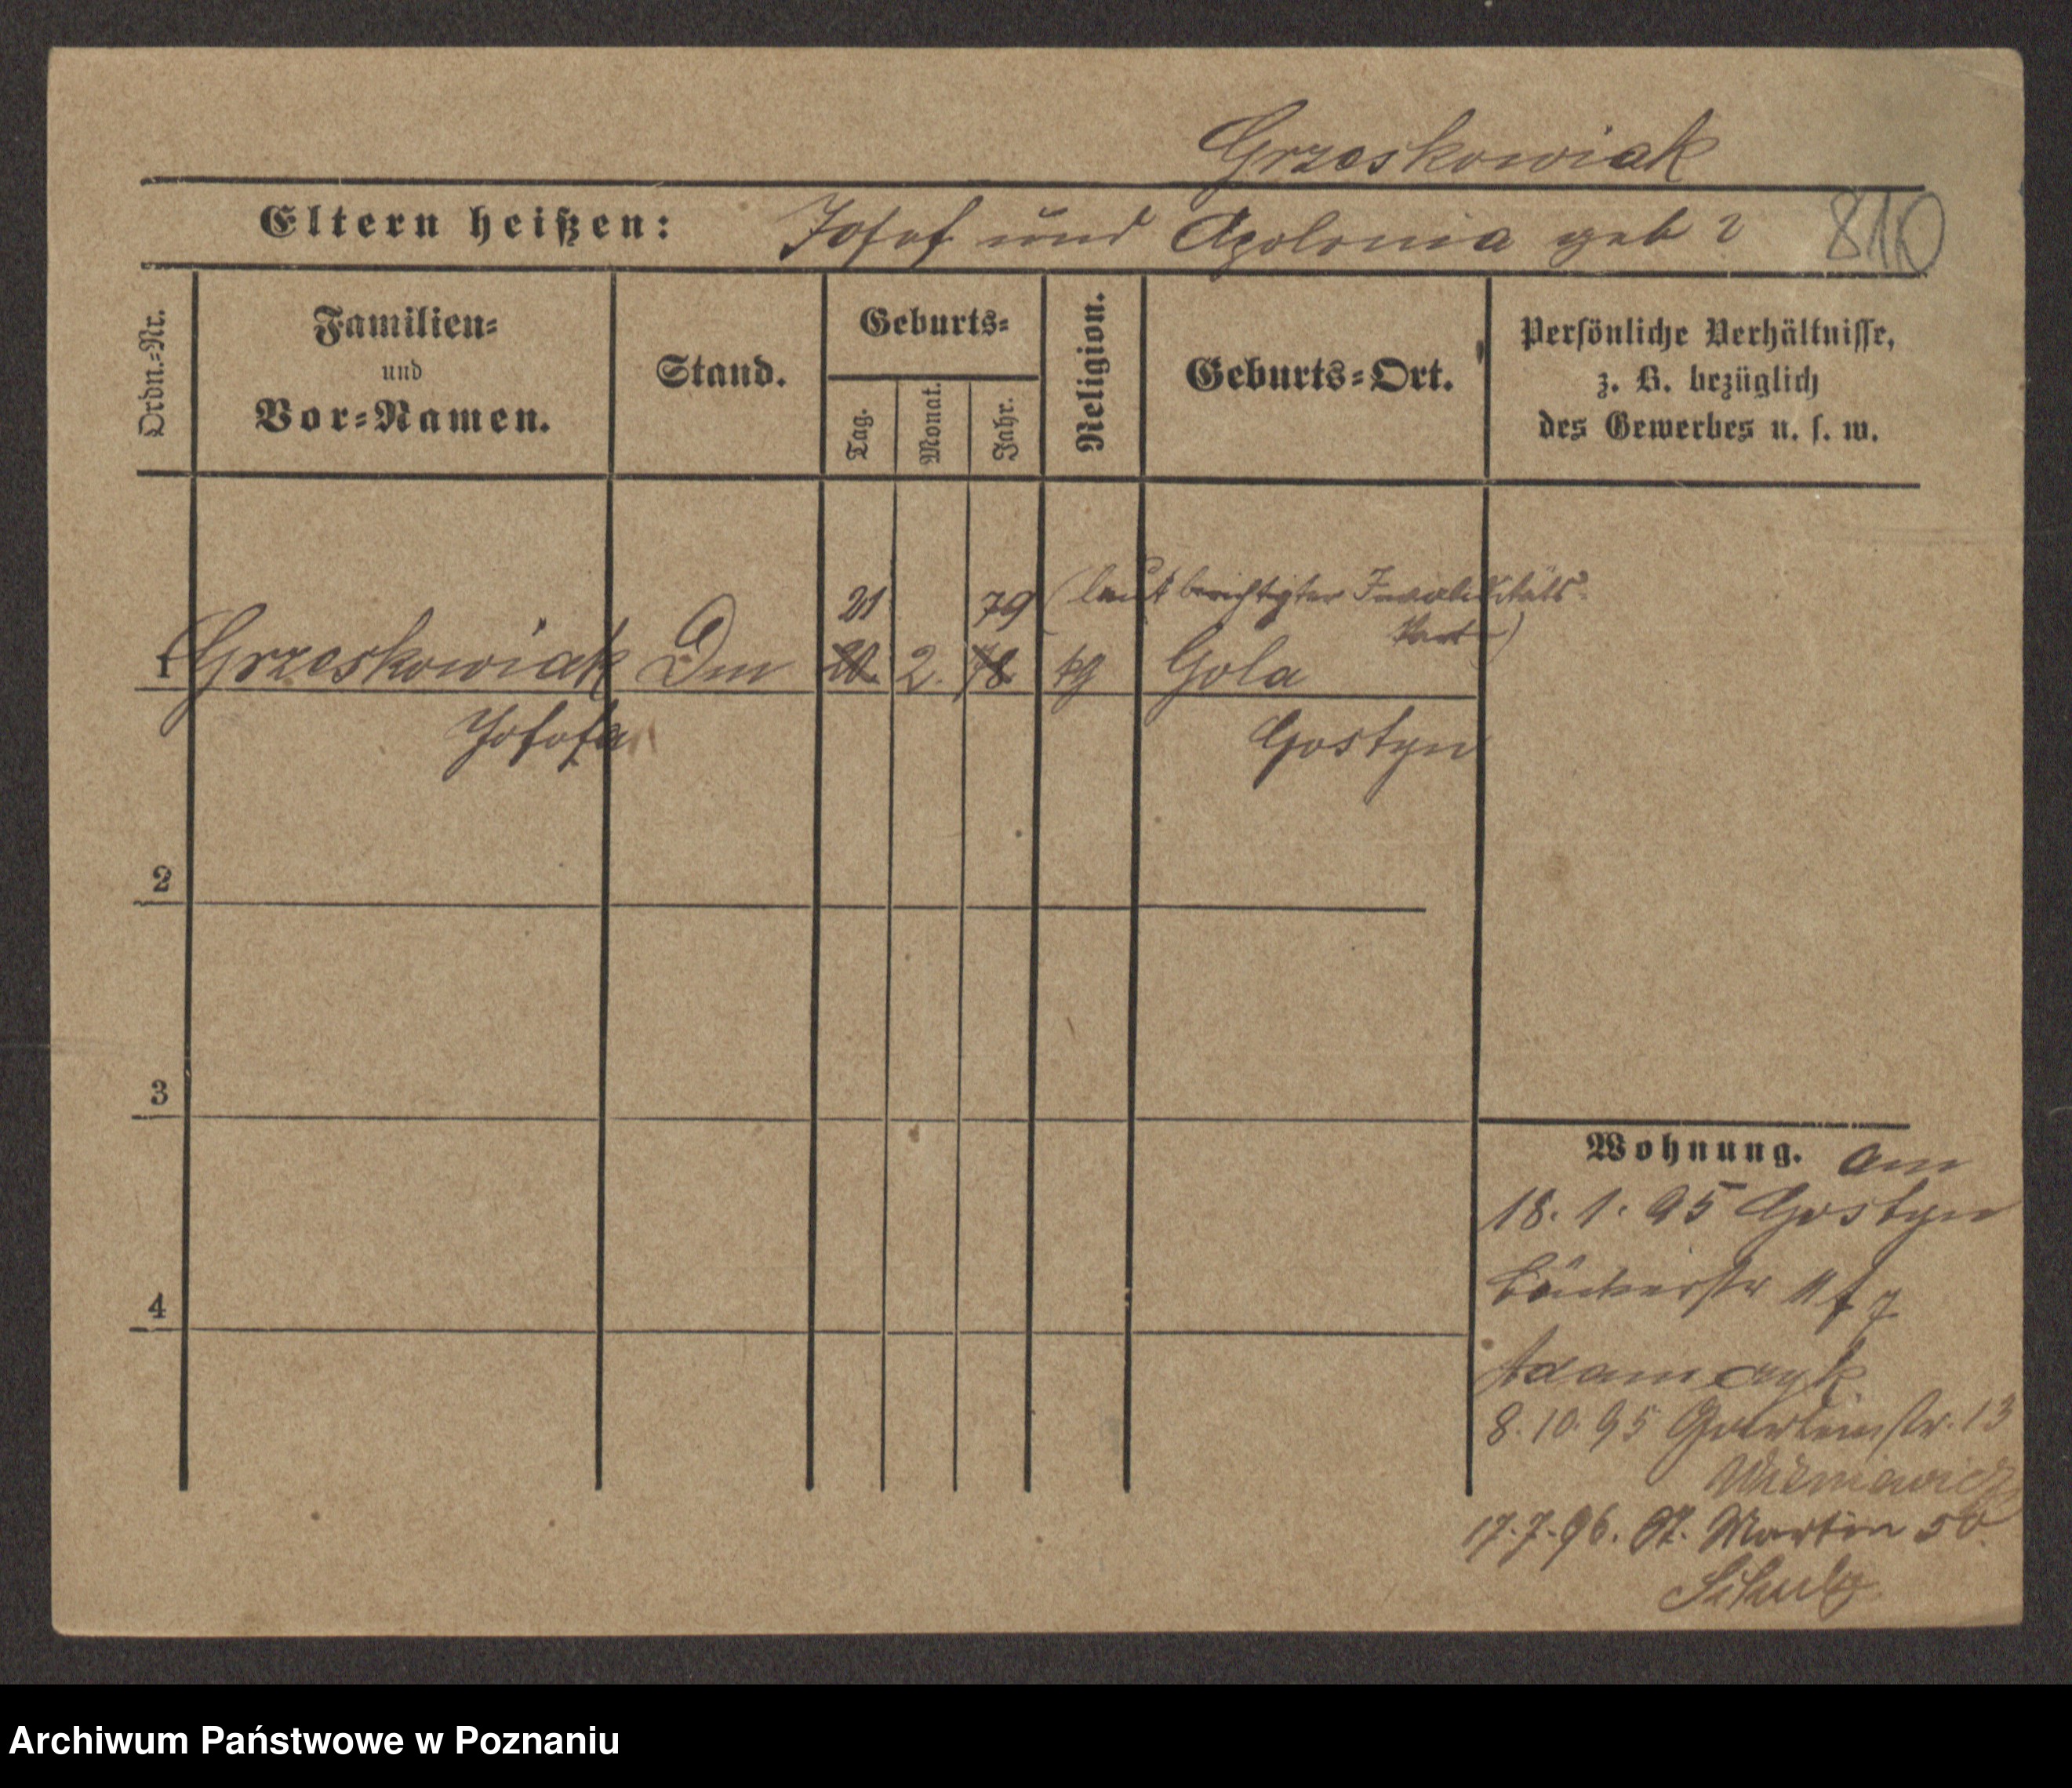 Grzeskowiak
Eltern heißen: Josef und Apolonia geb ? 810
Ordn.-Nr.
Familien-
und
Vor-Namen.
Stand.
Geburts-
Tag.
Monat.
Jahr.
Religion.
Geburts-Ort.
Persönliche Verhältnisse,
z. B. bezüglich
des Gewerbes u. s. w.
21 79 (laut berichtigter Invaliditäts-
Karte)
1 Grzeskowiak Dm 20. 2. 78 kg Gola
Josefa Gostyn
2
3
4
Wohnung. Am
18. 1. 95 Gostyn
Bäckerstr
Adamczyk
8. 10. 95 Gartenstr. 13
17. 7. 96. St. Martin 50
Schulz
Archiwum Państwowe w Poznaniu